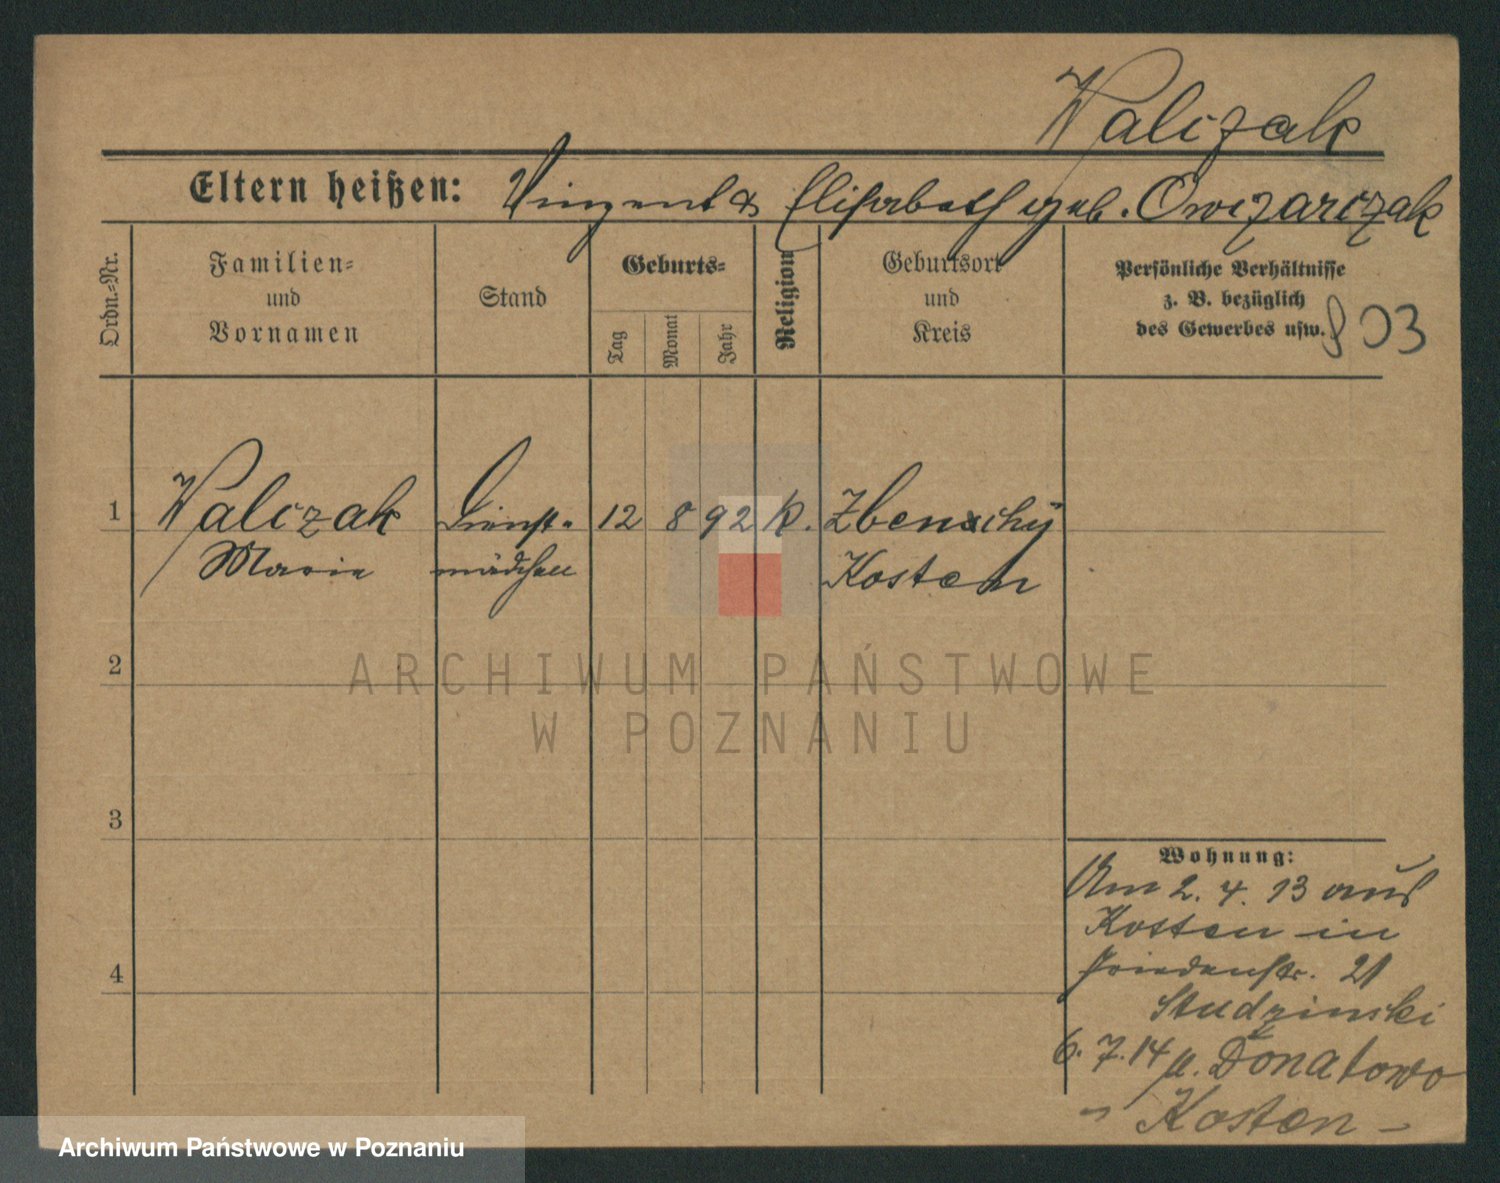 Walczak
Eltern heißen: Vinzent & Elisabeth geb. Owczarczak
Ordn.=Nr.
Familien=
und
Vornamen
Stand
Geburts=
Tag
Monat
Jahr
Religion
Geburtsort
und
Kreis
Persönliche Verhältnisse
z. B. bezüglich
des Gewerbes usw.
803
1 Walczak Dienst= 12 8 92 k. Zbenchy
Marie mädchen Kosten
2
ARCHIWUM PAŃSTWOWE
W POZNANIU
3
Wohnung:
Am 2. 4. 13 aus
Kosten in
4
Friedenstr. 21
Studzinski
6. 7. 14 n. Donatowo
Kosten –
Archiwum Państwowe w Poznaniu